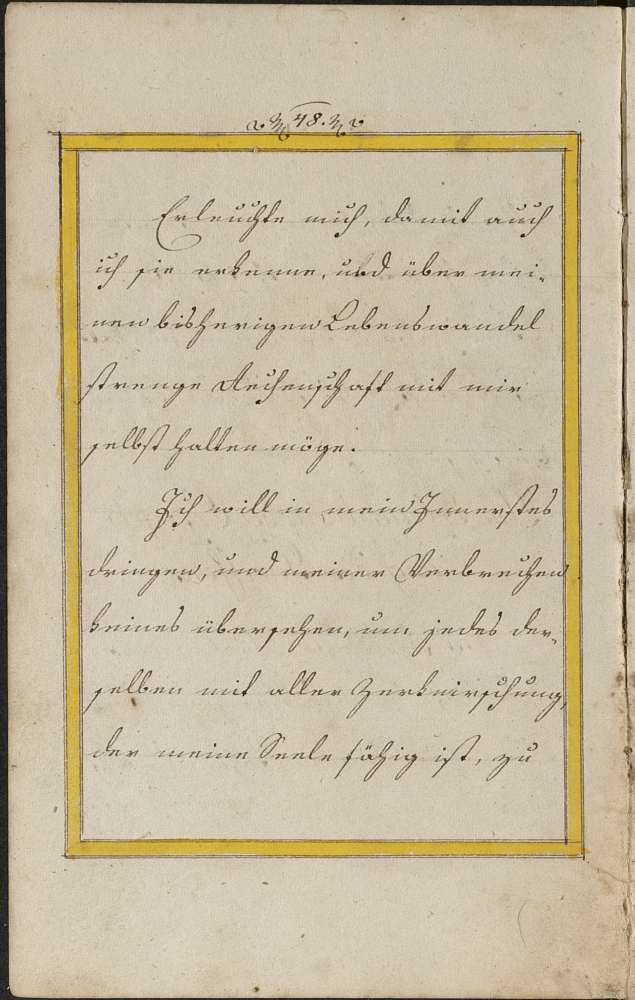 48.
Erleuchte mich, damit auch
ich sie erkenne, und über mei-
nen bisherigen Lebenswandel
strenge Rechenschaft mit mir
selbst halten möge.
Ich will in mein Innerstes
dringen, und meiner Verbrechen
keines übersehen, um jedes der-
selben mit aller Zerknirschung,
der meine Seele fähig ist, zu